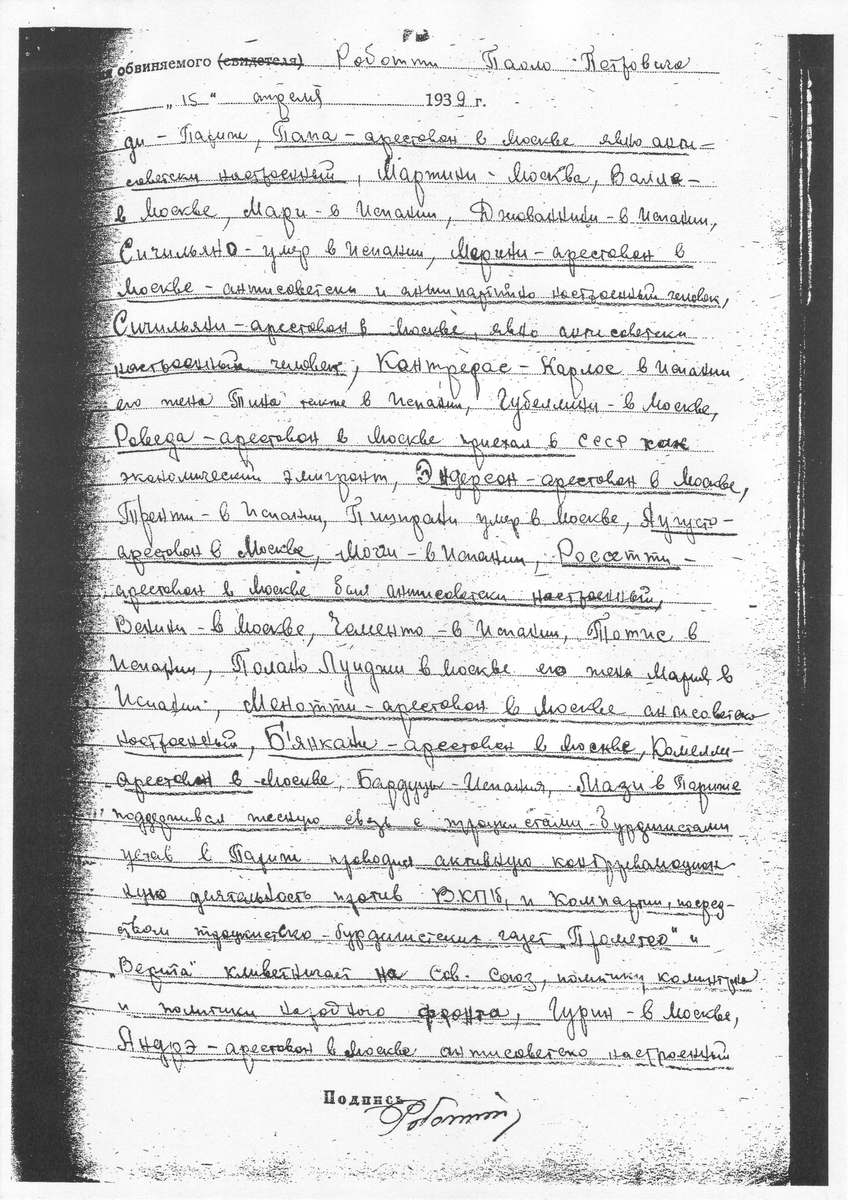 обвиняемого (свидетеля) Роботти Паоло Петровича
„15“ апреля 1939 г.
ди - Париж, Папа - арестован в Москве явно анти-
советски настроенный, Мартини - Москва, Валле -
в Москве, Мари - в Испании, Джованнини - в Испании,
Сичильяно - умер в Испании, Марини - арестован в
Москве - антисоветски и антипартийно настроенный человек,
Сичильяни - арестован в Москве, явно антисоветски
настроенный человек, Контрерас - Карлос в Испании
его жена Тина также в Испании, Губеллини - в Москве,
Роведа - арестован в Москве приехал в СССР как
экономический эмигрант, Эндерсон - арестован в Москве,
Тренти - в Испании, Пиупрани умер в Москве, Аугусто -
арестован в Москве, Моги - в Испании, Россетти -
арестован в Москве был антисоветски настроенный,
Венини - в Москве, Чементо - в Испании, Тотис в
Испании, Полано Луиджи в Москве его жена Мария в
Испании, Менотти - арестован в Москве антисоветско
настроенный, Б'янкани - арестован в Москве, Комелли -
арестован в Москве, Бардуци Испания, Мази в Париже
поддерживал тесную связь с троцкистами-бурдигистами
уехав в Париж проводил активную контрреволюцион
ную деятельность против ВКП/б, и Компартии, посред-
ством троцкистско-бурдигистских газет „Прометео“ и
„Верита“ клеветничает на Сов. Союз, политику Коминтерна
и политики народного фронта, Гурин - в Москве,
Андрэ - арестован в Москве антисоветско настроенный
Подпись Роботти